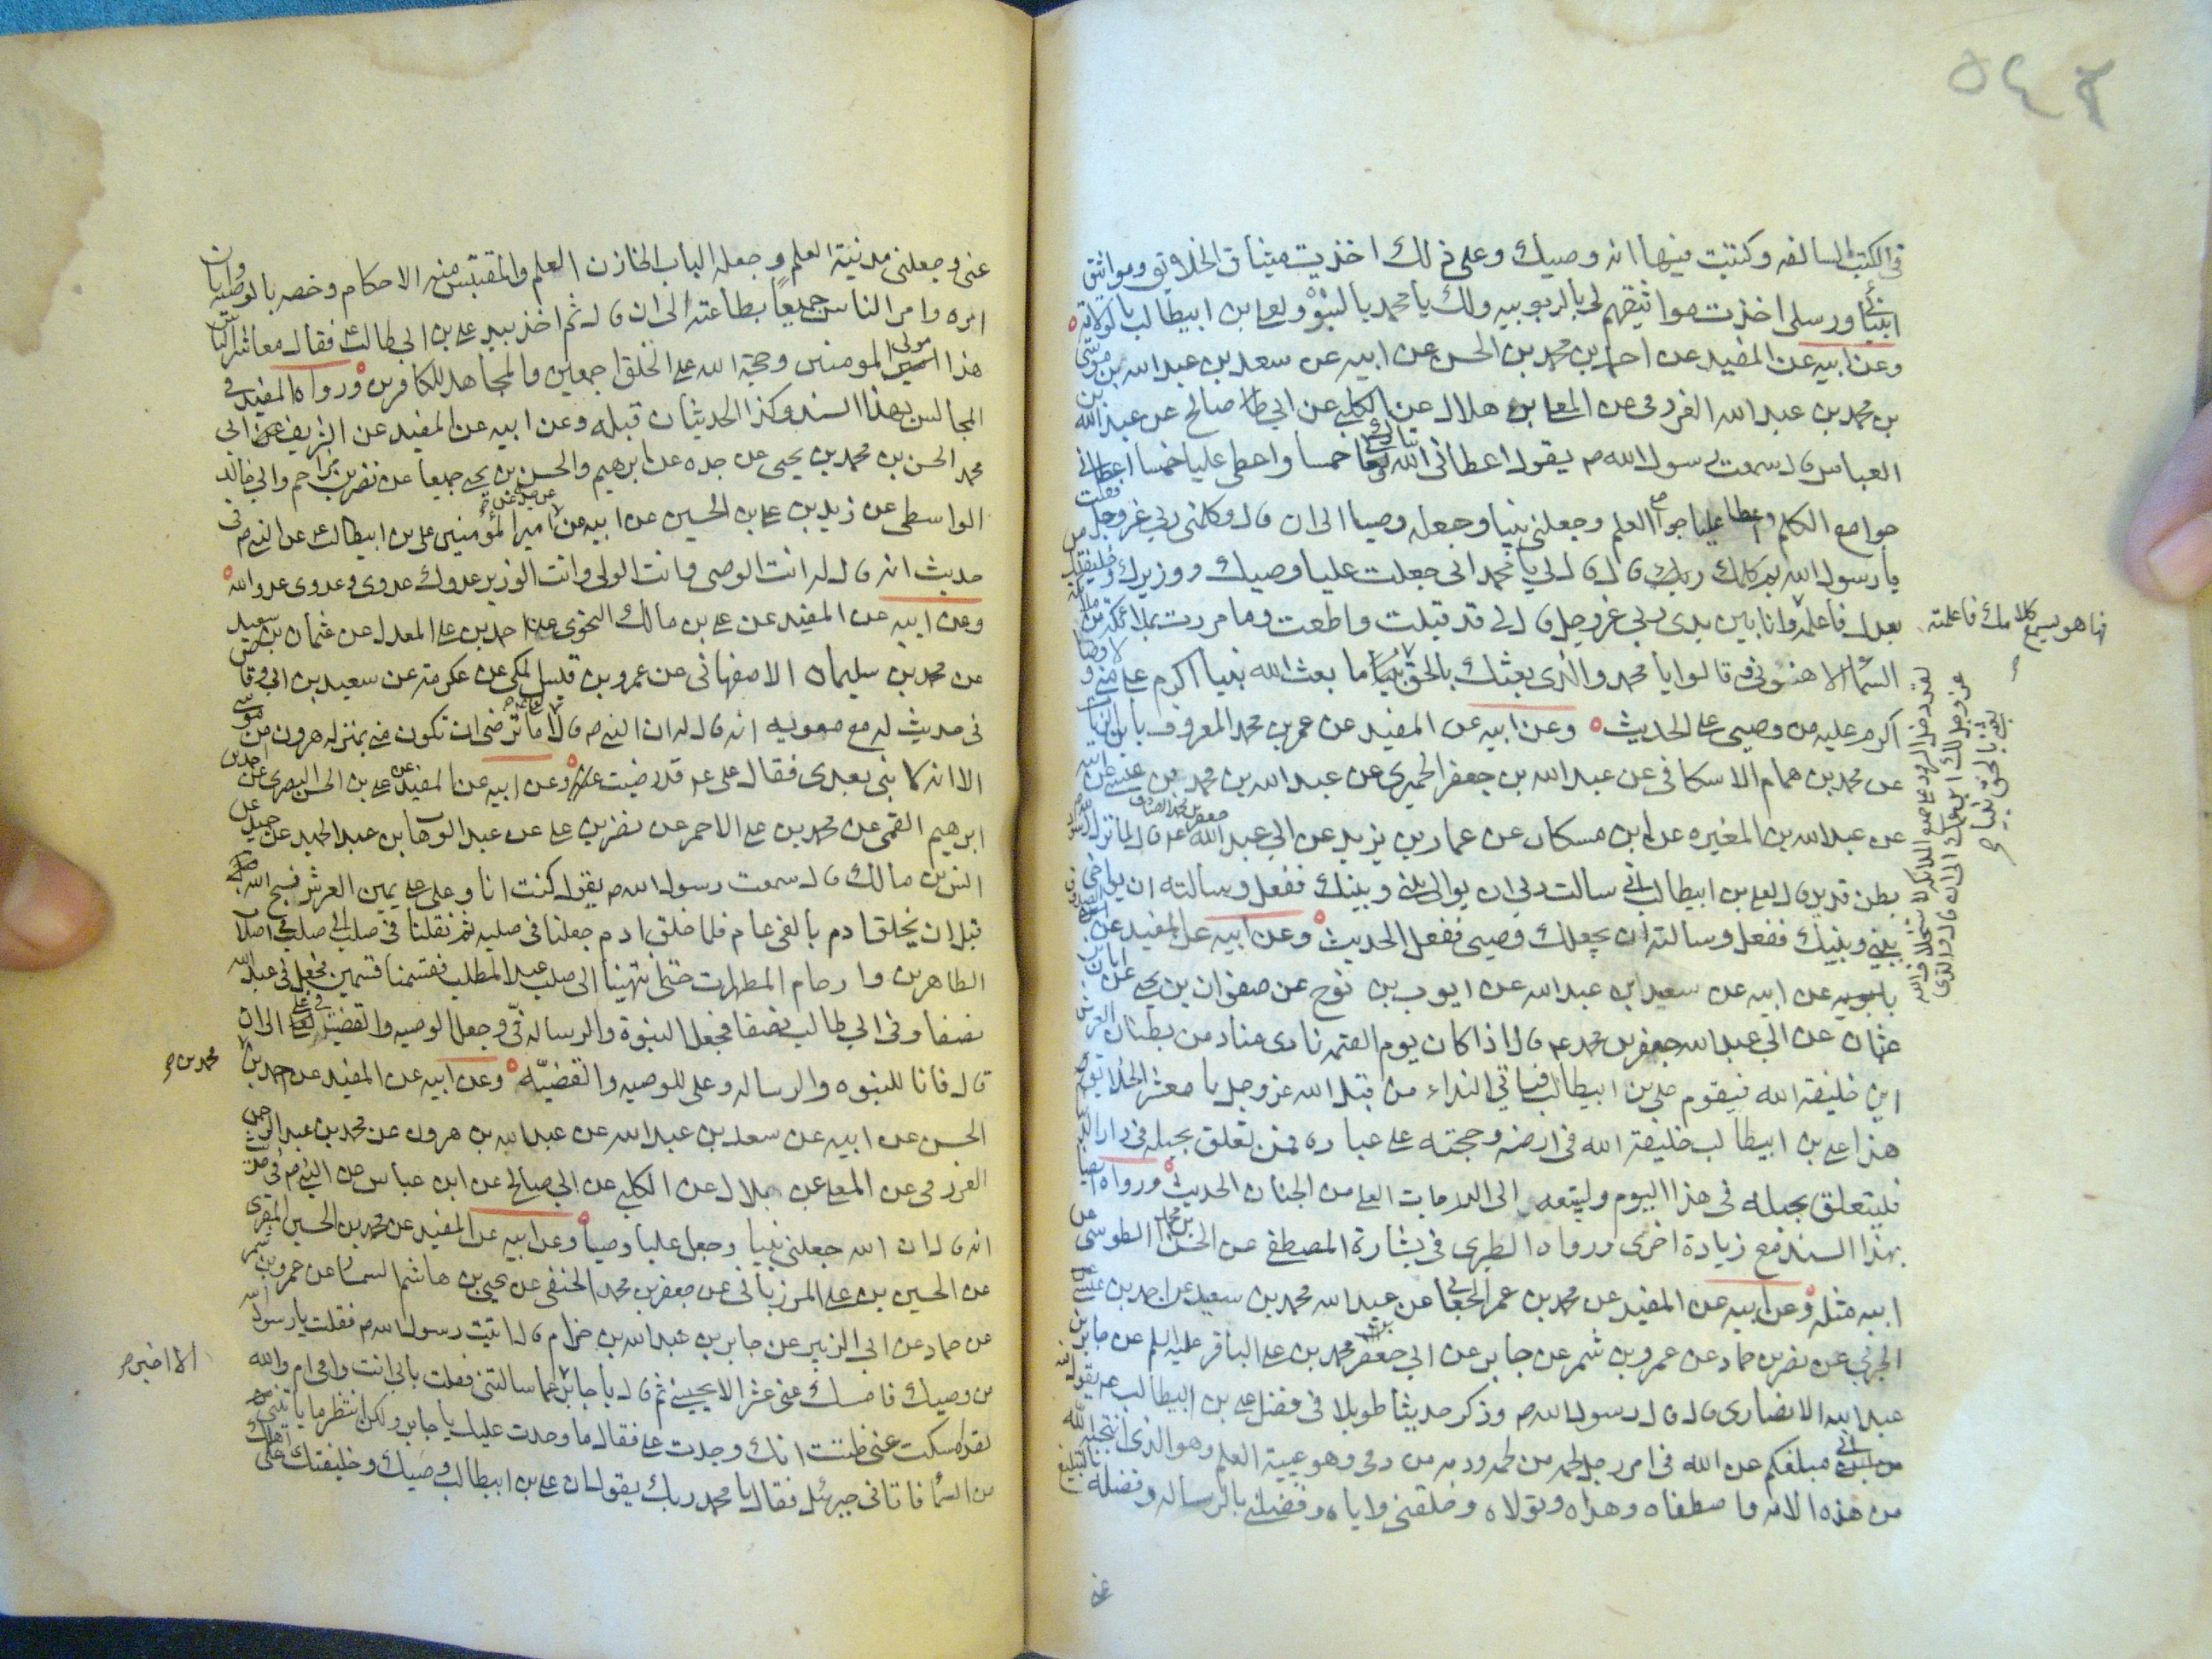 في الكتب السالفه وكتبت فيها انه وصيك وعلى ذلك اخذت ميثاق الخلايق ومواثيق
انبيائي ورسلي اخذت مواثيقهم لي بالربوبيه ولك يا محمد بالنبوه ولعلي بن ابيطالب بالولايه
وعن ابيه عن المفيد عن احمد بن محمد بن الحسن عن ابيه عن سعد بن عبد الله بن موسى
بن محمد بن عبد الله الفزومى عن المعلى بن هلال عن الكلبي عن ابي صالح عن عبد الله بن
العباس قال سمعت رسول الله ص يقول اعطاني الله تبارك وتعالى خمسا واعطى عليا خمسا اعطاني
جوامع الكلم واعطا عليا جوامع العلم وجعلني نبيا وجعله وصيا الى ان قال وكلمني ربي عزوجل فقلت
يا رسول الله بم كلمك ربك قال قال لي يا محمد اني جعلت عليا وصيك ووزيرك وخليفتك من
بعدك فاعلمه وانا بين يدي ربي عزوجل قال لي قد قبلت واطعت وما مررت بملائكة من ملائكة
السماء الا هنئوني قالوا يا محمد والذي بعثك بالحق نبيا ما بعث الله نبيا اكرم عليه منك ولا وصيا
اكرم عليه من وصيي علي الحديث وعن ابيه عن المفيد عن عمر بن محمد المعروف بابن الزيات
عن محمد بن همام الاسكافي عن عبد الله بن جعفر الحميري عن عبد الله بن محمد بن عيسى عن ابيه
عن عبد الله بن المغيره عن ابن مسكان عن عمار بن يزيد عن ابي عبد الله جعفر بن محمد الصادق ع قال لما نزل رسول الله ص
بطن قديد قال لعلي بن ابيطالب اني سالت ربي ان يوالي بيني وبينك ففعل وسالته ان يواخي
بيني وبينك ففعل وسالته ان يجعلك وصيي ففعل الحديث وعن ابيه عن المفيد عن الصدوق بن
بابويه عن ابيه عن سعد بن عبد الله عن ايوب بن نوح عن صفوان بن يحيى عن ابان بن
عثمان عن ابي عبد الله جعفر بن محمد ع قال اذا كان يوم القيمه نادى مناد من بطنان العرش
اين خليفة الله فيقوم علي بن ابيطالب فياتي النداء من قبل الله عزوجل يا معشر الخلايق
هذا علي بن ابيطالب خليفة الله في ارضه وحجته على عباده فمن تعلق بحبله في دار الدنيا
فليتعلق بحبله في هذا اليوم وليتبعه الى الدرجات العلى من الجنان الحديث ورواه ايضا
بهذا السند مع زيادة اخرى ورواه الطبري في بشارة المصطفى عن الحسن بن محمد الطوسي عن
ابيه مثله وعن ابيه عن المفيد عن محمد بن عمر الجعابي عن عبد الله محمد بن سعيد عن احمد بن عيسى
الجرني عن نصر بن حماد عن عمرو بن شمر عن جابر عن ابي جعفر محمد بن علي الباقر عليه السلم عن جابر بن
عبد الله الانصاري قال قال رسول الله ص وذكر حديثا طويلا في فضل علي بن ابيطالب ع يقول فيه
اني مبلغكم عن الله في امر رجل لحمه من لحمي ودمه من دمي وهو عيبة العلم وهو الذي انتجبه الله
من هذه الامه واصطفاه وهداه وتولاه وخلقني واياه وفضلني بالرسالة وفضله بالتبليغ
فها هو يسمع كلامك فاعلمته
عني وجعلني مدينة العلم وجعله الباب الخازن العلم والمقتبس منه الاحكام وخصه بالوصيه وابان
امره وامر الناس جميعا بطاعته الى ان قال ثم اخذ بيد علي بن ابي طالب ع فقال معاشر الناس
هذا مولى المومنين وحجة الله على الخلق اجمعين والمجاهد للكافرين ورواه المفيد في
المجالس بهذا السند وكذا الحديثان قبله وعن ابيه عن المفيد عن الشريف عن ابي
محمد الحسن بن محمد بن يحيى عن جده عن ابرهيم والحسن بن يحيى جميعا عن نصر بن مزاحم وابي خالد
الواسطي عن زيد بن علي بن الحسين عن ابيه عن جده عن امير المؤمنين علي بن ابيطالب ع عن النبي ص في
حديث انه قال له انت الوصي وانت الولي وانت الوزير عدوك عدوي وعدوي عدو الله
وعن ابيه عن المفيد عن علي بن مالك النحوي عن احمد بن علي المعدل عن عثمان بن سعيد
عن محمد بن سليمان الاصفهاني عن عمرو بن قيس المكي عن عكرمة عن سعيد بن ابي وقاص
في حديث له مع معويه انه قال له ان النبي ص قال اما ترضى ان تكون مني بمنزله هرون من موسى
الا انه لا نبي بعدي فقال علي ع قد رضيت وعن ابيه عن المفيد عن علي بن الحسن البصري عن احمد بن
ابرهيم القمي عن محمد بن علي الاحمر عن نصر بن علي عن عبد الوهاب بن عبد الحميد عن حميد عن
انس بن مالك قال سمعت رسول الله ص يقول كنت انا وعلي على يمين العرش نسبح الله
قبل ان يخلق ادم بالفي عام فلما خلق ادم جعلنا في صلبه ثم نقلنا في صلب الى صلب في اصلاب
الطاهرين وارحام المطهرات حتى انتهينا الى صلب عبد المطلب فقسمنا قسمين فجعل في عبد الله
نصفا وفي ابي طالب نصفا فجعل النبوة والرساله في وجعل الوصيه والقضيه في علي الى ان
قال فانا للنبوه والرساله وعلي للوصيه والقضيه وعن ابيه عن المفيد عن احمد بن
محمد بن
الحسن عن ابيه عن سعد بن عبد الله عن عبد الله بن هرون عن محمد بن عبد الرحمن
العرزمي عن المعلى بن هلال عن الكلبي عن ابي صالح عن ابن عباس عن النبي ص في حديث
انه قال ان الله جعلني نبيا وجعل عليا وصيا وعن ابيه عن المفيد عن محمد بن الحسين المقري
عن الحسين بن علي المرزباني عن جعفر بن محمد الحنفي عن يحيى بن هاشم السمسار عن عمرو بن شمر
عن حماد عن ابي الزبير عن جابر بن عبد الله بن حرام قال اتيت رسول الله ص فقلت يا رسول الله
من وصيك فامسك عني عشرا لا يجيبني ثم قال يا جابر عما سالتني فقلت بابي انت وامي ام والله
الا اخبرك
لقد سكت عني ظننت انك وجدت علي فقال ما وجدت عليك يا جابر ولكن انتظر ما ياتيني
من السماء فاتاني جبرئيل فقال يا محمد ربك يقول ان علي بن ابيطالب وصيك وخليفتك على اهلك